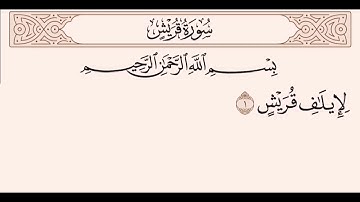 سُورَةُ قُرَيْشٍ
بِسْمِ ٱللَّهِ ٱلرَّحْمَٰنِ ٱلرَّحِيمِ
لِإِيلَٰفِ قُرَيْشٍ ١